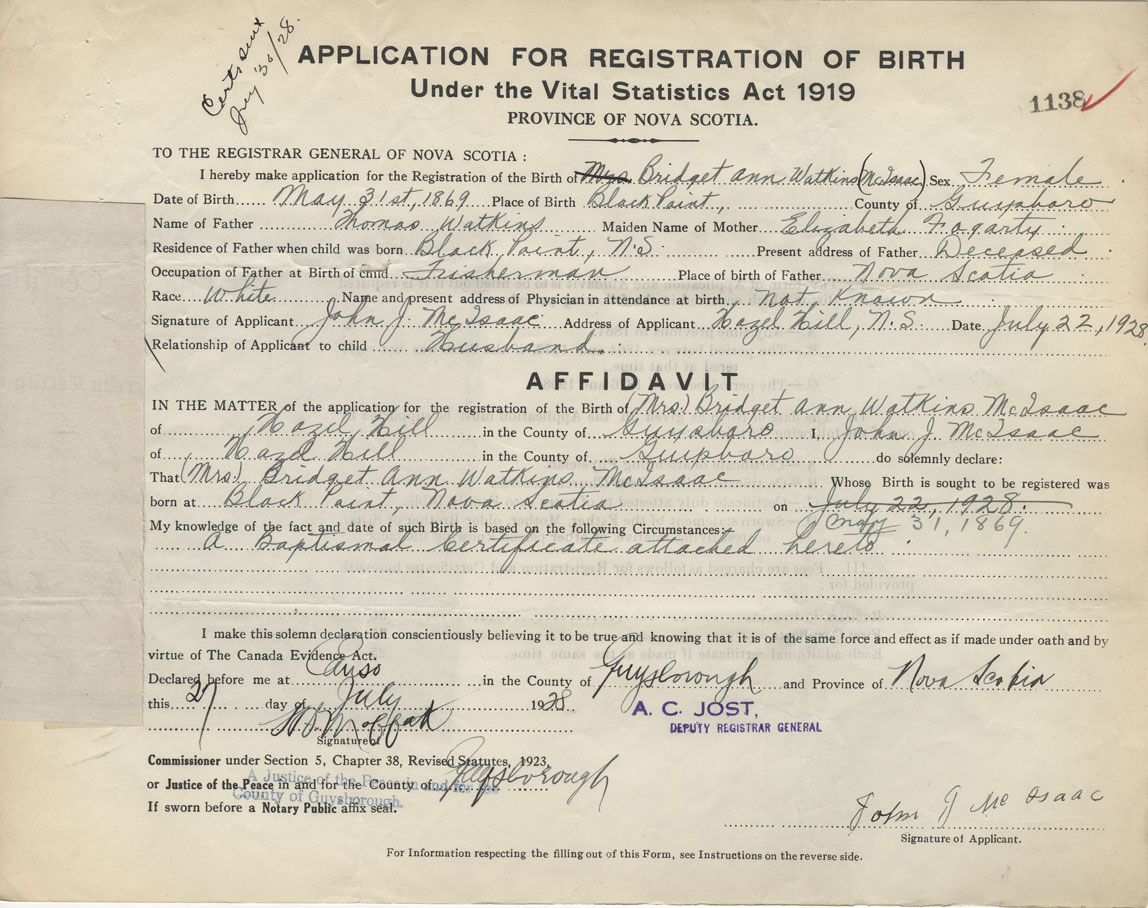 Certs sent
July 30/28.
APPLICATION FOR REGISTRATION OF BIRTH
Under the Vital Statistics Act 1919
1138
PROVINCE OF NOVA SCOTIA.
TO THE REGISTRAR GENERAL OF NOVA SCOTIA :
I hereby make application for the Registration of the Birth of Mrs Bridget Ann Watkins (McIsaac) Sex Female
Date of Birth May 31st, 1869 Place of Birth Black Point, County of Guysboro
Name of Father Thomas Watkins Maiden Name of Mother Elizabeth Fogarty
Residence of Father when child was born Black Point, N.S. Present address of Father Deceased
Occupation of Father at Birth of child Fisherman Place of birth of Father Nova Scotia
Race White Name and present address of Physician in attendance at birth Not Known
Signature of Applicant John J. McIsaac Address of Applicant Hazel Hill, N.S. Date July 22, 1928
Relationship of Applicant to child Husband.
AFFIDAVIT
IN THE MATTER of the application for the registration of the Birth of (Mrs) Bridget Ann Watkins McIsaac
of Hazel Hill in the County of Guysboro I, John J. McIsaac
of Hazel Hill in the County of Guysboro do solemnly declare:
That (Mrs) Bridget Ann Watkins McIsaac Whose Birth is sought to be registered was
born at Black Point, Nova Scotia on July 22, 1928.
May 31, 1869.
My knowledge of the fact and date of such Birth is based on the following Circumstances:
A Baptismal Certificate attached hereto
I make this solemn declaration conscientiously believing it to be true and knowing that it is of the same force and effect as if made under oath and by
virtue of The Canada Evidence Act.
Declared before me at Canso in the County of Guysborough and Province of Nova Scotia
this 27 day of July 1928.
A. C. JOST,
DEPUTY REGISTRAR GENERAL
Moffatt
Signature of
Commissioner under Section 5, Chapter 38, Revised Statutes, 1923,
or Justice of the Peace in and for the County of Guysborough
A Justice of the Peace in and for the
County of Guysborough.
If sworn before a Notary Public affix seal.
John J McIsaac
Signature of Applicant.
For Information respecting the filling out of this Form, see Instructions on the reverse side.